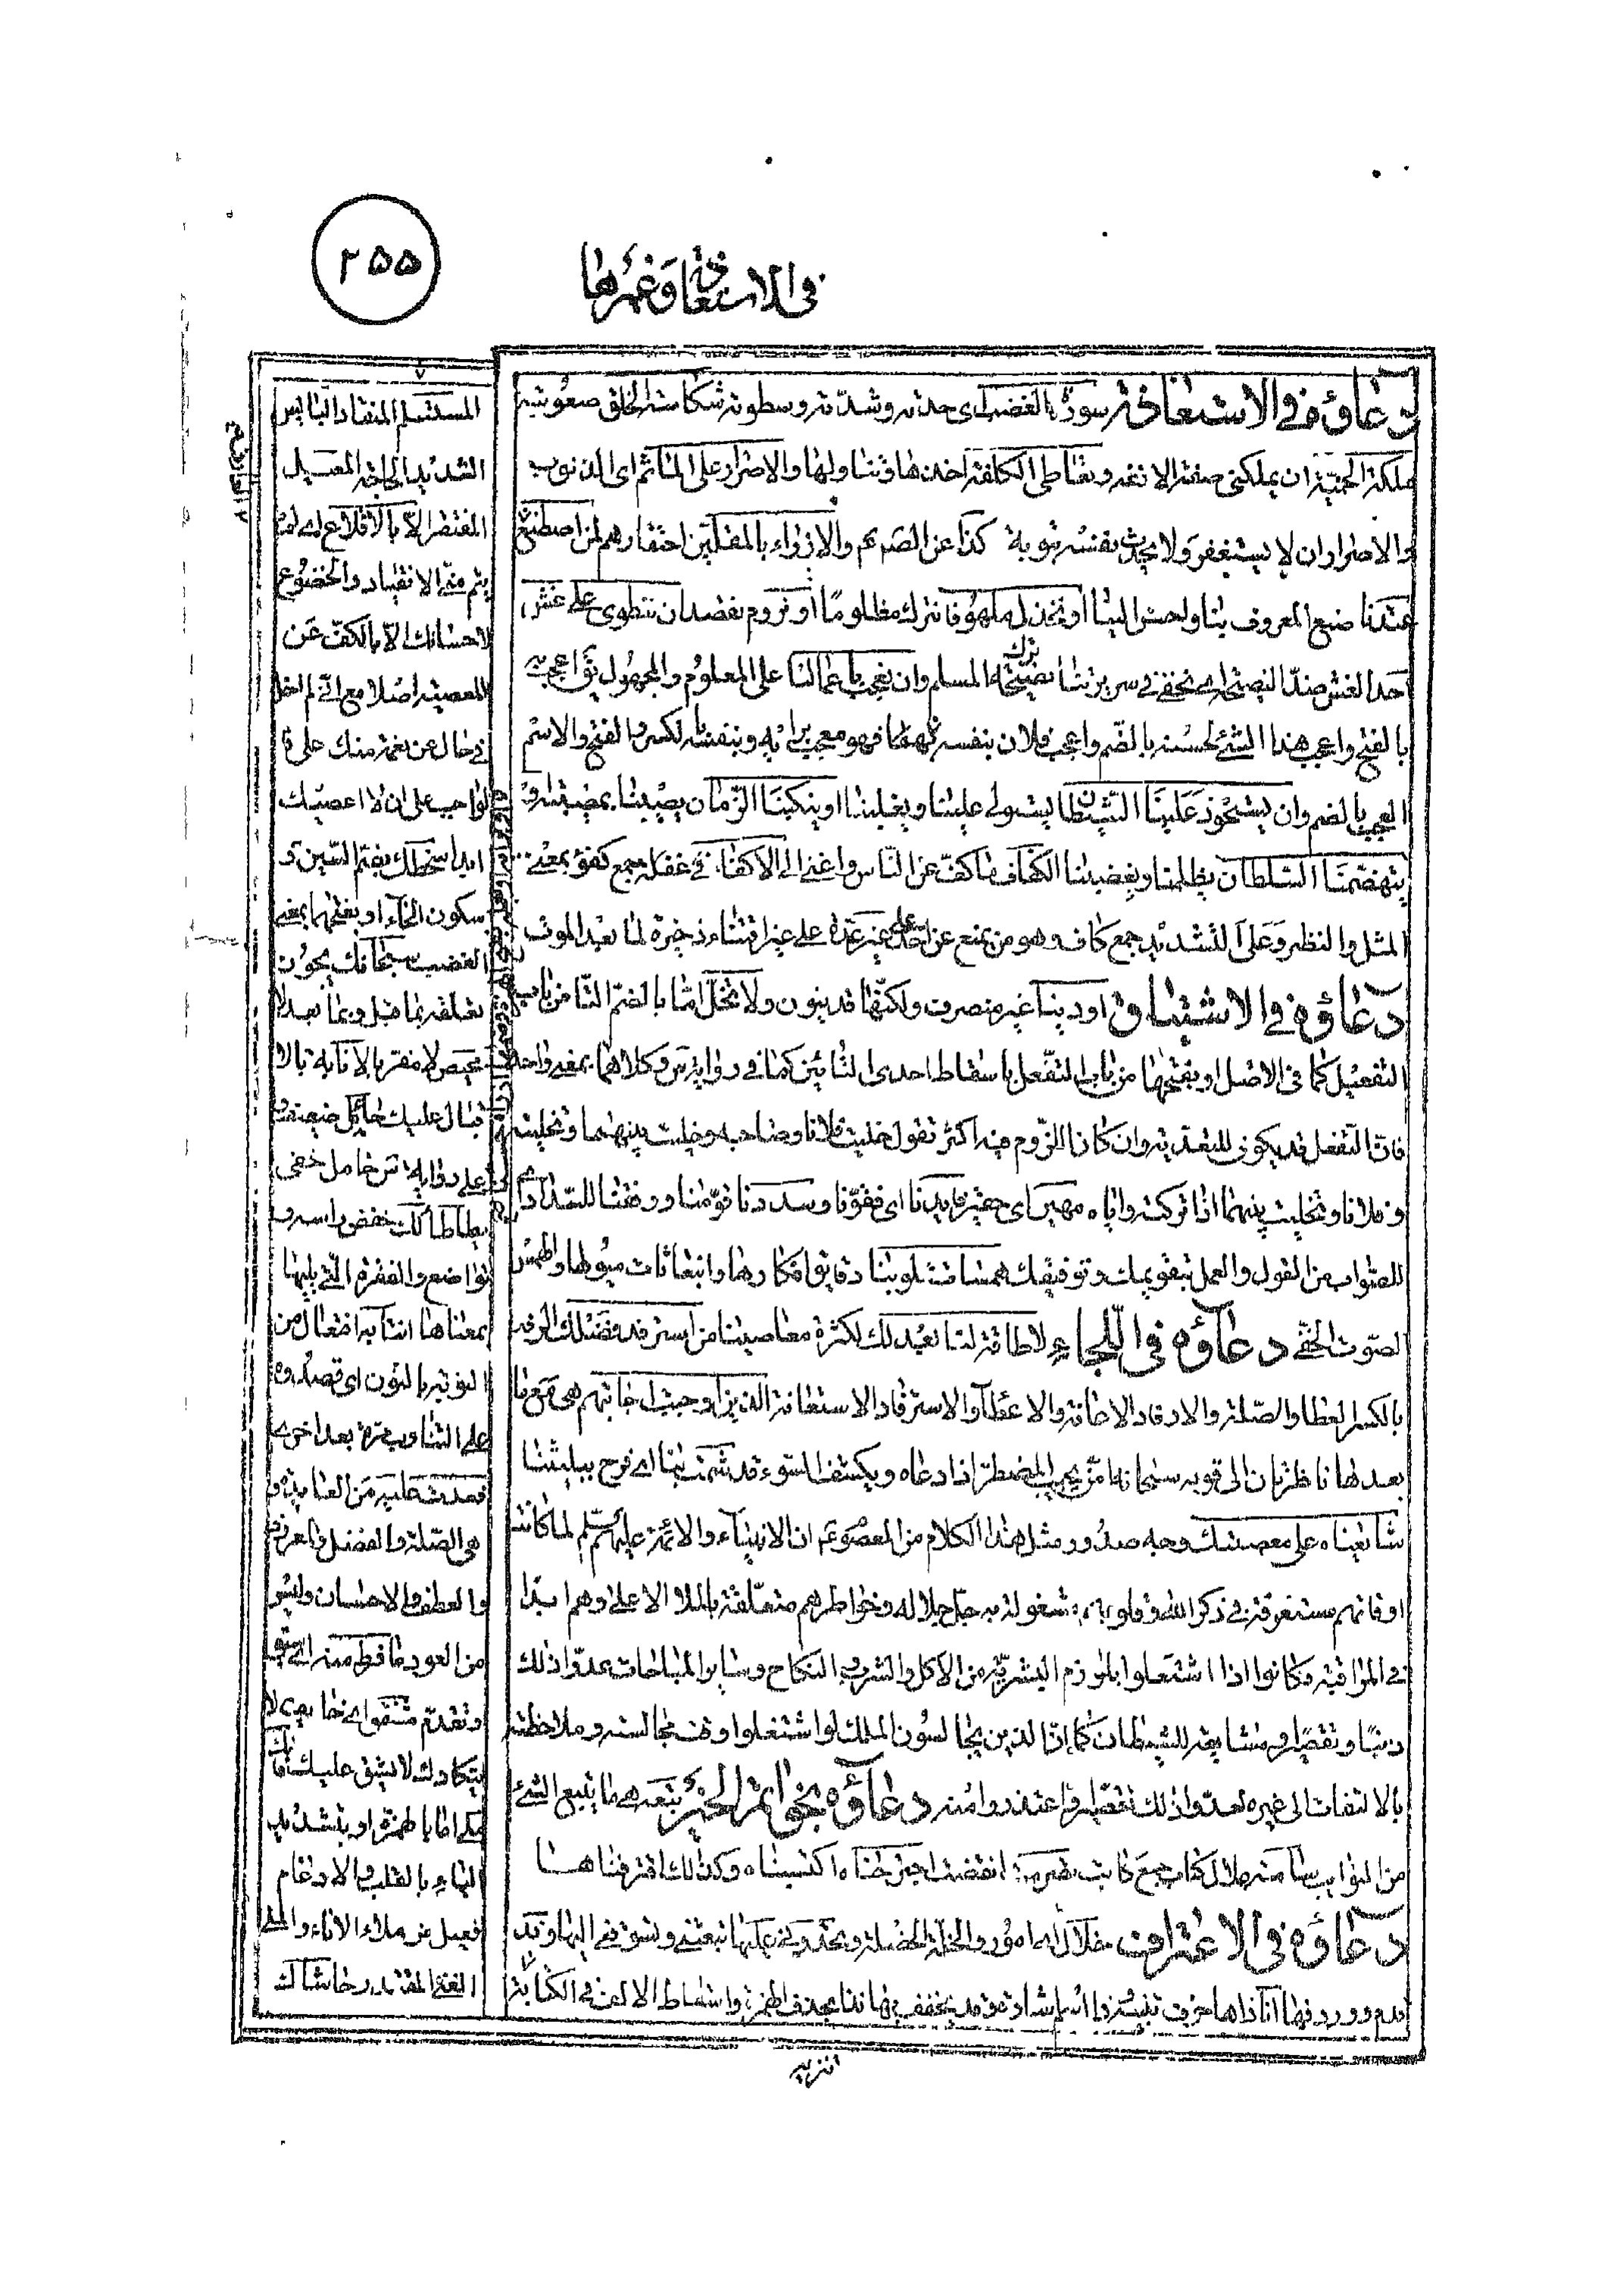 ۲۵۵
في الاستعاذة وغيرها
دعاؤه في الاستعاذة سورة الغضب اى حدته وشدته وسطوته شكاسة الخلق صعوبته
ملكة الحمية ان يملكنى صفة الانفة وتعاطى الكلفة اخذها وتناولها والاصرار على المآثم اى الذنوب
والاصرار ان لا يستغفر ولا يحدث نفسه بتوبة كذا عن الصم والازراء بالمقلين احتقارهم لمن اصطنع
عندنا صنع المعروف بنا واحسن الينا او نخذل ملهوفا نترك مظلوما او نروم نقصد ان ننطوى على غش
احد الغش ضد النصيحة اى نخفى فى سريرتنا ترك نصيحة المسلم وان نعجب باعمالنا على المعلوم والمجهول يق اعجب به
بالفتح واعجب هذا الشئ لحسنه بالضم واعجب فلان بنفسه فهو معجب برأيه وبنفسه بالفتح والاسم
العجب بالضم وان يستحوذ علينا الشيطان يستولى علينا ويغلبنا او ينكبنا الزمان يصيبنا بمصيبة او
يتهضمنا السلطان يظلمنا ويغضبنا الكفاف ما كف عن الناس واغنى الى الاكفاء جمع كفو بمعنى
المثل والنظير وعلى التشديد جمع كاف وهو من يمنع عن غير عدة على غير اقتناء ذخيرة لما بعد الموت
دعاؤه في الاشتياق او دنيا غير منصرف ولكنها قد ينون ولا تخل اما بالضم التا من باب
التفعيل كما فى الاصل او بفتحها من باب التفعل باسقاط احدى التائين كما فى رواية س وكلاهما بمعنى واحد
فان التفعل قد يكون للتعدية وان كان اللزوم فيه اكثر تقول خليت فلانا وصاحبه وخليت بينهما وتخليت
فلانا وتخليت بينهما اذا تركته واياه مهين اى حقير فايدنا اى فقونا وسددنا قومنا ووفقنا للسداد اى
للصواب من القول والعمل بتقويمك وتوفيقك همسات قلوبنا دقايق افكارها وانبعاثات ميولها والهمس
الصوت الخفى دعاؤه في اللجاء لا طاقة لنا بعدلك لكثرة معاصينا من استرفد فضلك الرفد
بالكسر العطا والصلة والارفاد الاعانة والاعطاء والاسترفاد الاستعانة الذين اوجبت اجابتهم هى مع ما
بعدها ناظران الى قوله سبحانه امن يجيب المضطر اذا دعاه ويكشف السوء قد شمت بنا اى فرح ببليتنا
شايعناه على معصيتك وجه صدور مثل هذا الكلام من المعصوم ان الانبياء والائمة عليهم السلم لما كانت
اوقاتهم مستغرقة فى ذكر الله وقلوبهم مشغولة به جل جلاله وخواطرهم متعلقة بالملا الاعلى وهم ابدا
فى المراقبة وكانوا اذا اشتغلوا بلوازم البشرية من الاكل والشرب والنكاح وساير المباحات عدوا ذلك
ذنبا وتقصيرا ومتابعة للشيطان كما ان الذين يجالسون الملك لو اشتغلوا وقت مجالسته وملاحظته
بالالتفات الى غيره لعدوا ذلك تقصيرا واعتذروا منه دعاؤه بخواتم الخير تبعة هى ما يتبع الشئ
من النوايب سامة ملال كتاب جمع كاتب انقضت اجترحناه اكتسبناه وكذلك اقترفناها
دعاؤه في الاعتراف خلال اى امور والخلة الخصلة وتحدونى عليها تبعثنى وتسوقنى اليها وقد
انتزيه
المستسلم المنقاد البايس
الشديد الحاجة المعيل
المفتقر الا بالاقلاع اى لم
يتم منى الانقياد والخضوع
لاحسانك الا بالكف عن
المعصية اصلا مع انى لم اخل
فى حال عن نعمة منك على
الواجب على ان لا اعصيك
ابدا سخطك بضم السين و
سكون الخاء او بفتحهما بمعنى
الغضب سبحانك يجوز ان
تعلقه بما قبل وبما بعد
محيص لا مفر بالانابة بالا
قبال عليك حايل ضعيف
على رواية س خامل خفى
تطاطا لك خفض راسه و
تواضع والفقرة التى يليها
بمعناها انتابه افتعال من
النوبة بالنون اى قصدوه
على التناوب مرة بعد اخرى
هى الصلة والفضل والمعروف
والعطف والاحسان
يتكادك لا يشق عليك
اما بالهمزة او بتشديد
الياء بالقلب والادغام
فعيل من ملاء الاناء والملى
الغنى المقتدر حاشاك